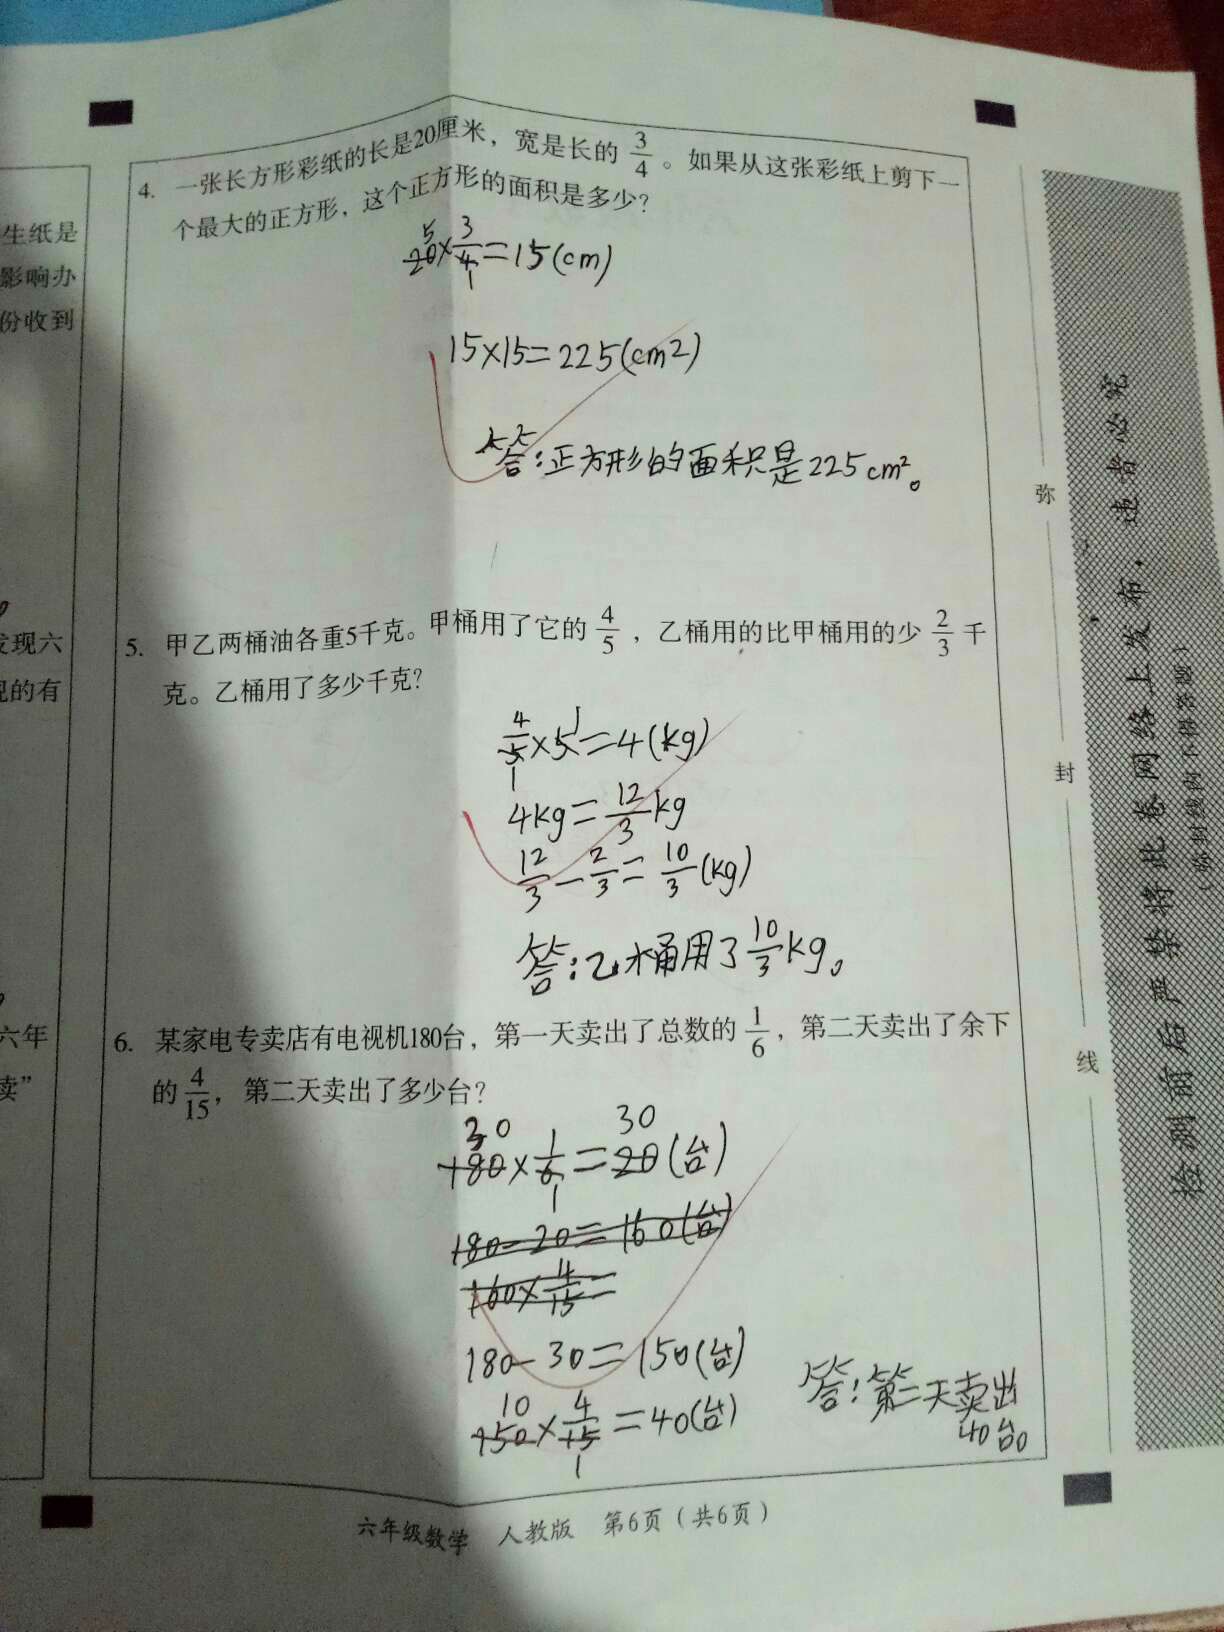 生纸是
影响办
份收到
发现六
的有
六年
读”
4. 一张长方形彩纸的长是20厘米，宽是长的 3/4 。如果从这张彩纸上剪下一
个最大的正方形，这个正方形的面积是多少？
5 3
20×4=15(cm)
1
15×15=225(cm2)
答:正方形的面积是225cm²。
5. 甲乙两桶油各重5千克。甲桶用了它的 4/5 ，乙桶用的比甲桶用的少 2/3 千
克。乙桶用了多少千克？
4/5×5=4(kg)
1 1
4kg=12/3kg
12/3-2/3=10/3(kg)
答:乙桶用了10/3kg。
6. 某家电专卖店有电视机180台，第一天卖出了总数的 1/6 ，第二天卖出了余下
的 4/15，第二天卖出了多少台？
30 30
180×1/6=20(台)
1
180-20=160(台)
160×4/15=
180-30=150(台)
10
150×4/15=40(台)
1
答:第二天卖出
40台。
六年级数学 人教版 第6页（共6页）
弥
封
线
检测前后严禁将此卷网络上发布，违者必究
（弥封线内不得答题）